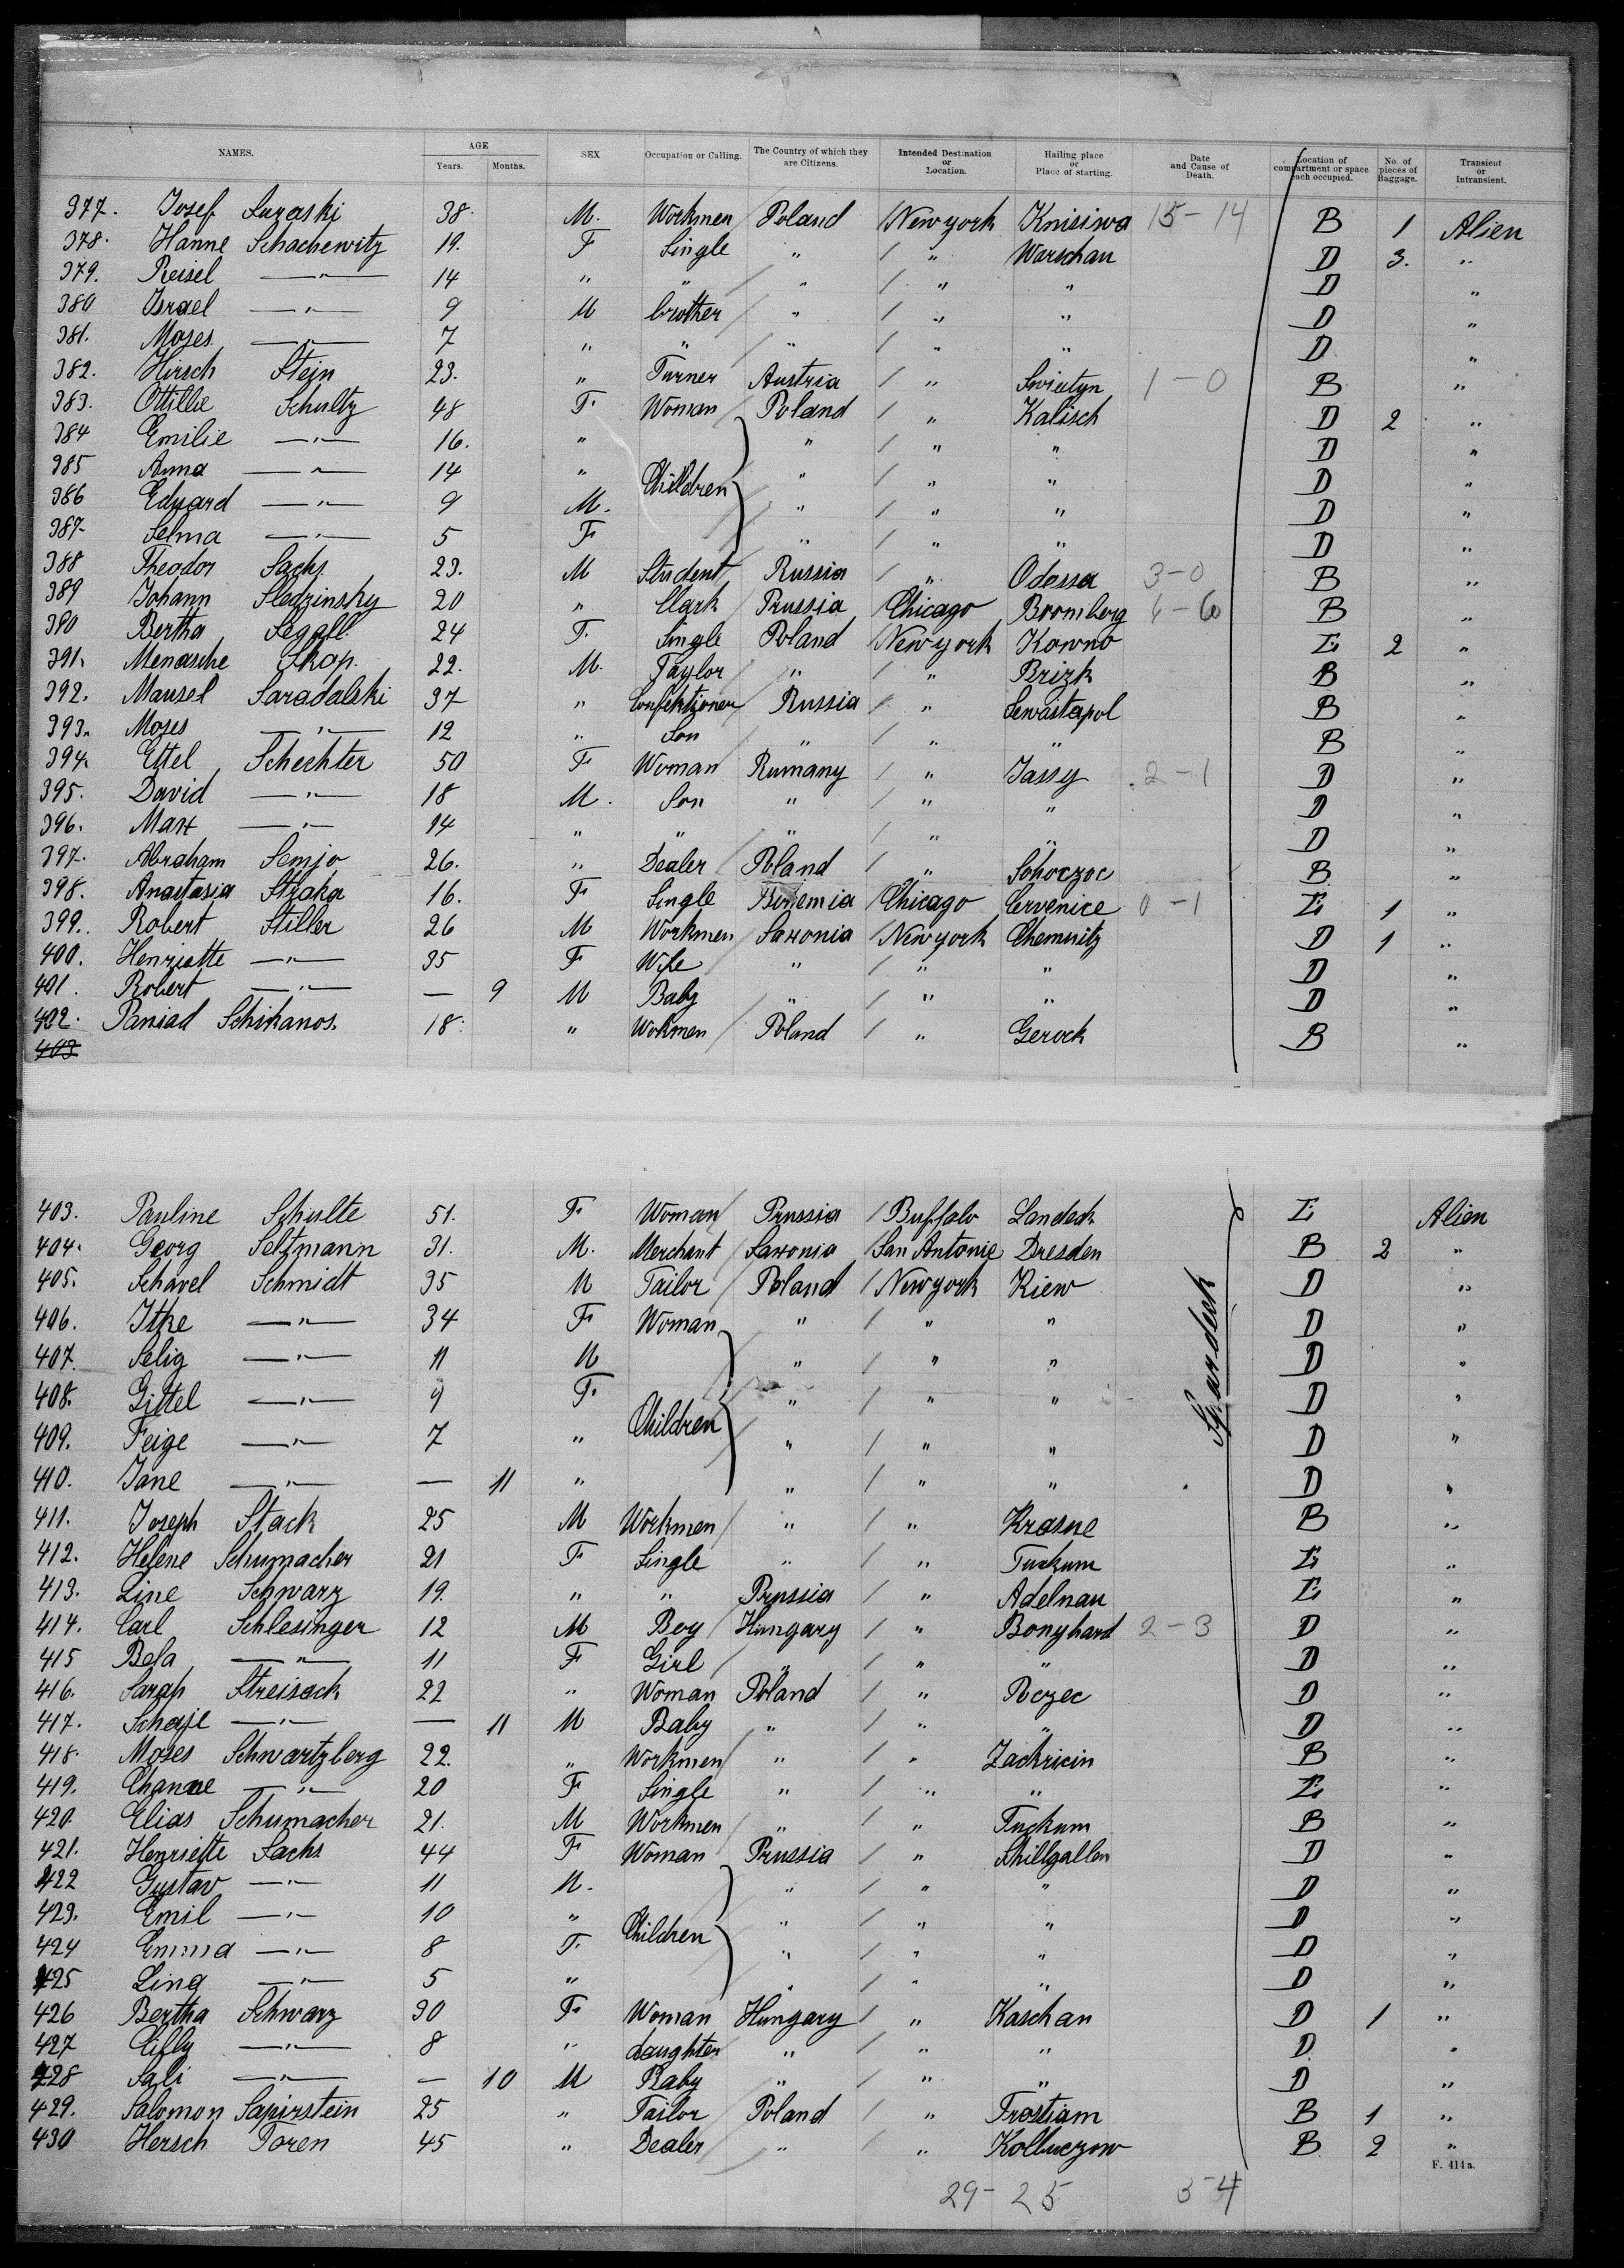 NAMES. AGE Years. Months. SEX Occupation or Calling. The Country of which they are Citizens. Intended Destination or Location. Hailing place or Place of starting. Date and Cause of Death. Location of compartment or space each occupied. No. of pieces of Baggage. Transient or Intransient.
377. Josef Luraski 38 M. Workmen Poland / New york Knisiwa 15-14 B 1 Alien
378. Hanne Schachewitz 19. F Single " / " Warschau D 3. "
379. Reisel —"— 14 " " " / " " D "
380 Israel —"— 9 M brother " / " " D "
381. Moses —"— 7 " " " / " " D "
382. Hirsch Stein 23. " Turner Austria / " Sniutyn 1-0 B "
383. Ottillie Schultz 48 F. Woman Poland / " Kalisch D 2 "
384 Emilie —"— 16. " " / " " D "
385 Anna —"— 14 " Children " / " " D "
386 Eduard —"— 9 M. " / " " D "
387 Selma —"— 5 F " / " " D "
388 Theodor Sachs 23. M Student Russia / " Odessa 3-0 B "
389 Johann Sledzinsky 20 " Clark Prussia / Chicago Boomberg 6-6 B "
380 Bertha Segall 24 F. Single Poland / New york Kowno E 2 "
391. Menasche Skop. 22. M. Taylor " / " Brizk B "
392. Mausel Saradalski 37 " Confektzioner Russia / " Sewastapol B "
393. Moses —"— 12 " Son " / " " B "
394. Ettel Schechter 50 F Woman Rumany / " Jassy 2-1 D "
395. David —"— 18 M. Son " / " " D "
396. Max —"— 14 " " " / " " D "
397. Abraham Semjo 26. " Dealer Poland / " Sohoczoc B "
398. Anastasia Straka 16. F Single Bohemia / Chicago Cervenice 0-1 E 1 "
399. Robert Stiller 26 M Workmen Saxonia / New york Chemnitz D 1 "
400. Henriette —"— 35 F Wife " / " " D "
401. Robert —"— — 9 M Baby " / " " D "
402. Paniad Schikanos. 18. " Wokmen Poland / " Gerock B "
403
403. Pauline Schulte 51. F Woman Prussia / Buffalo Landeck E Alien
404. Georg Seltzmann 31. M. Merchant Saxonia / San Antonie Dresden B 2 "
405. Schavel Schmidt 35 M Tailor Poland / New york Kiew D "
406. Itke —"— 34 F Woman " / " " D "
407. Selig —"— 11 M " / " " D "
408. Gittel —"— 9 F. Children " / " " D "
409. Feige —"— 7 " " / " " D "
410. Jane —"— — 11 " " / " " D "
411. Joseph Stack 25 M Workmen " / " Krasne B "
412. Helene Schumacher 21 F Single " / " Tuckum E "
413. Line Schwarz 19. " " Prussia / " Adelnau E "
414. Carl Schlesinger 12 M Boy Hungary / " Bonyhard 2-3 D "
415 Bela —"— 11 F Girl " / " " D "
416. Sarah Streisack 22 " Woman Poland / " Roczec D "
417. Schaje —"— — 11 M Baby " / " " D "
418. Moses Schwartzberg 22. " Workmen " / " Zackricin B "
419. Channe —"— 20 F Single " / " " E "
420. Elias Schumacher 21. M Workmen " / " Tuckum B "
421. Henriette Sachs 44 F Woman Prussia / " Shillgallen D "
422 Gustav —"— 11 M. " / " " D "
423. Emil —"— 10 " Children " / " " D "
424 Emma —"— 8 F. " / " " D "
425 Lina —"— 5 " " / " " D "
426 Bertha Schwarz 30 F. Woman Hungary / " Kaschau D 1 "
427 Cilly —"— 8 " daughter " / " " D "
428 Sali —"— — 10 M Baby " / " " D "
429. Salomon Sapirstein 25 " Tailor Poland / " Frostiam B 1 "
430 Hersch Toren 45 " Dealer " / " Kolbuczow B 2 "
F. 414a.
29-25 3-4